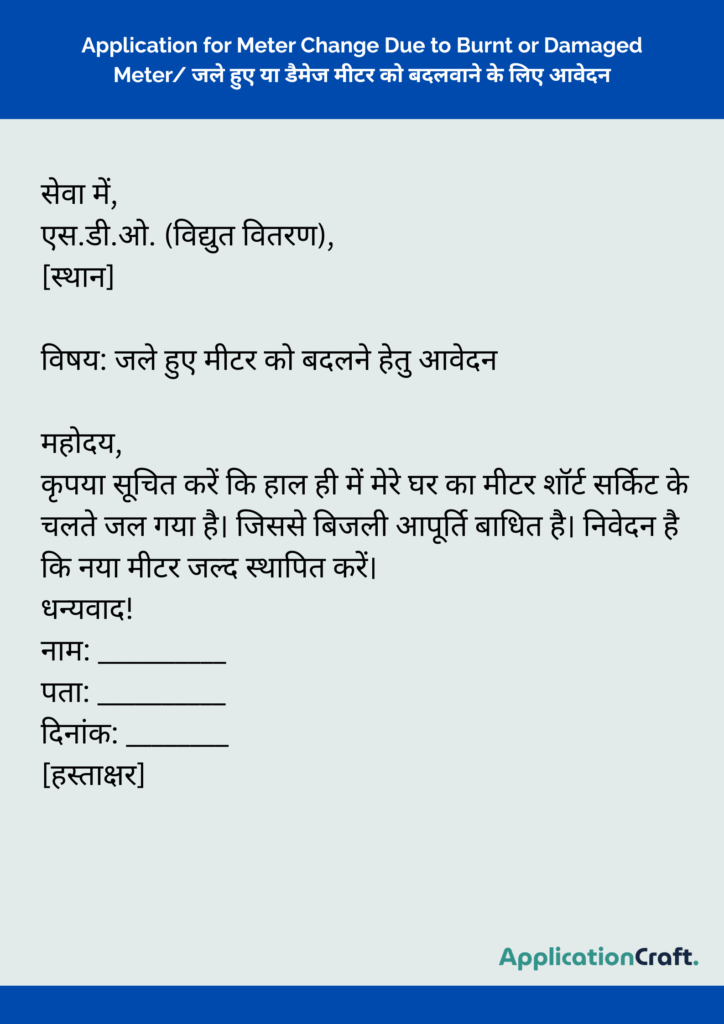 Application for Meter Change Due to Burnt or Damaged
Meter/ जले हुए या डैमेज मीटर को बदलवाने के लिए आवेदन
सेवा में,
एस.डी.ओ. (विद्युत वितरण),
[स्थान]
विषय: जले हुए मीटर को बदलने हेतु आवेदन
महोदय,
कृपया सूचित करें कि हाल ही में मेरे घर का मीटर शॉर्ट सर्किट के
चलते जल गया है। जिससे बिजली आपूर्ति बाधित है। निवेदन है
कि नया मीटर जल्द स्थापित करें।
धन्यवाद!
नाम: __________
पता: __________
दिनांक: ________
[हस्ताक्षर]
ApplicationCraft.